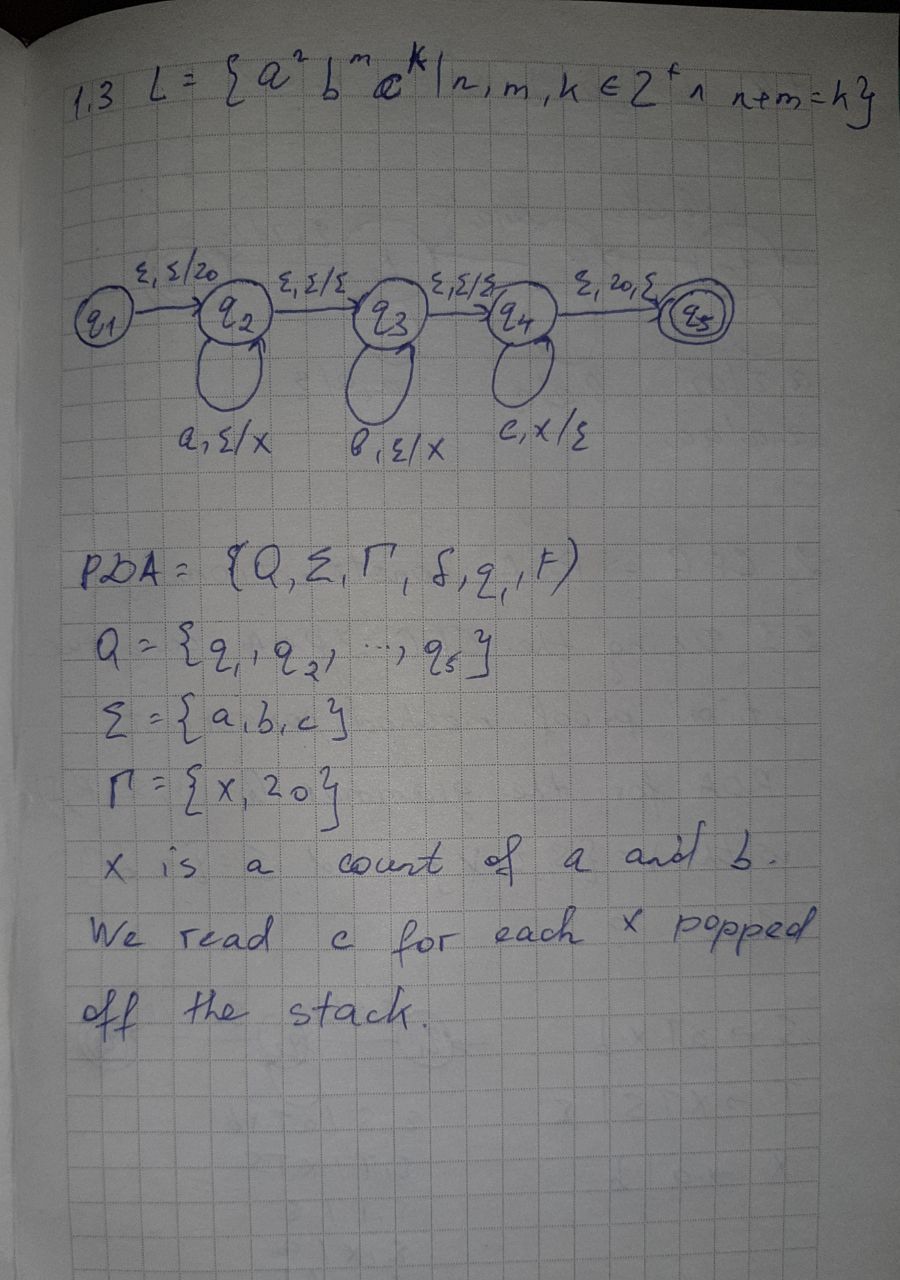 1.3 L = {aⁿ bᵐ cᵏ | n, m, k ∈ Z⁺ ∧ n+m = k}
ε, ε/z0 ε, ε/ε ε, ε/ε ε, z0, ε
q1 q2 q3 q4 q5
a, ε/x b, ε/x c, x/ε
PDA = {Q, Σ, Γ, δ, q₁, F)
Q = {q₁, q₂, ..., q₅}
Σ = {a, b, c}
Γ = {x, z0}
x is a count of a and b.
We read c for each x popped
off the stack.